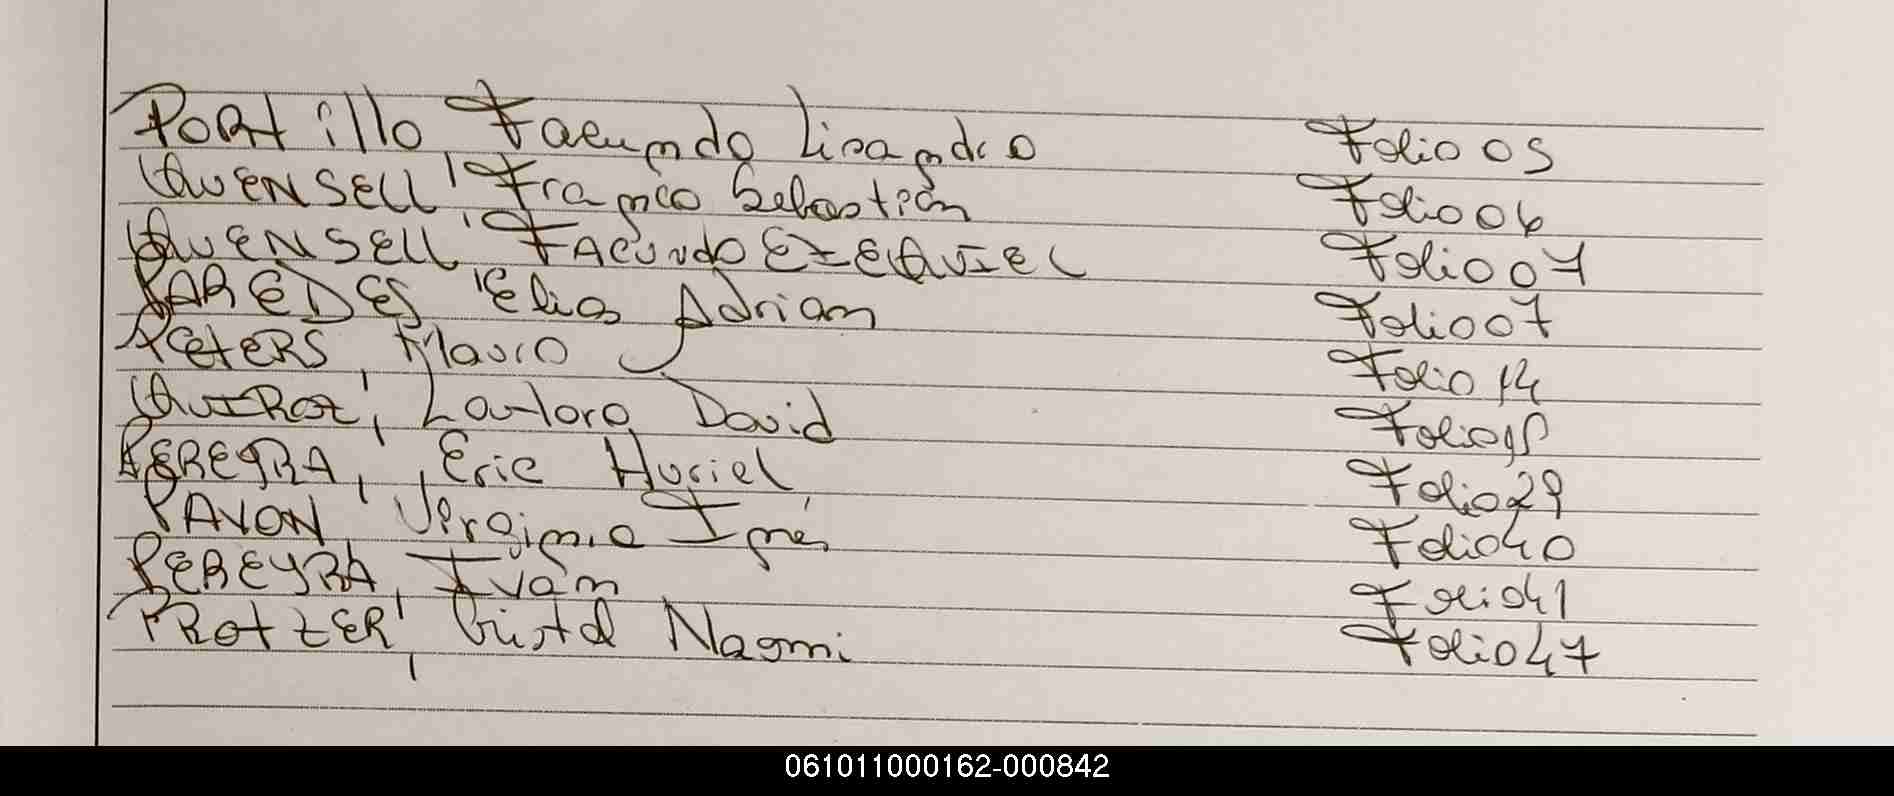 PORtillo Facundo Lisandro Folio 05
QUENSELL, Franco Sebastián Folio 06
QUENSELL, FACUNDO EZEQUIEL Folio 07
PAREDES, Elias Adrian Folio 07
PETERS, Mauro Folio 14
QUIROZ, Lautaro David Folio
PEREYRA, Eric Huriel Folio 29
PAVON, Virginia Inés Folio 40
PEREYRA, Ivan Folio 41
PROTZER, Cristal Naomi Folio 47
061011000162-000842